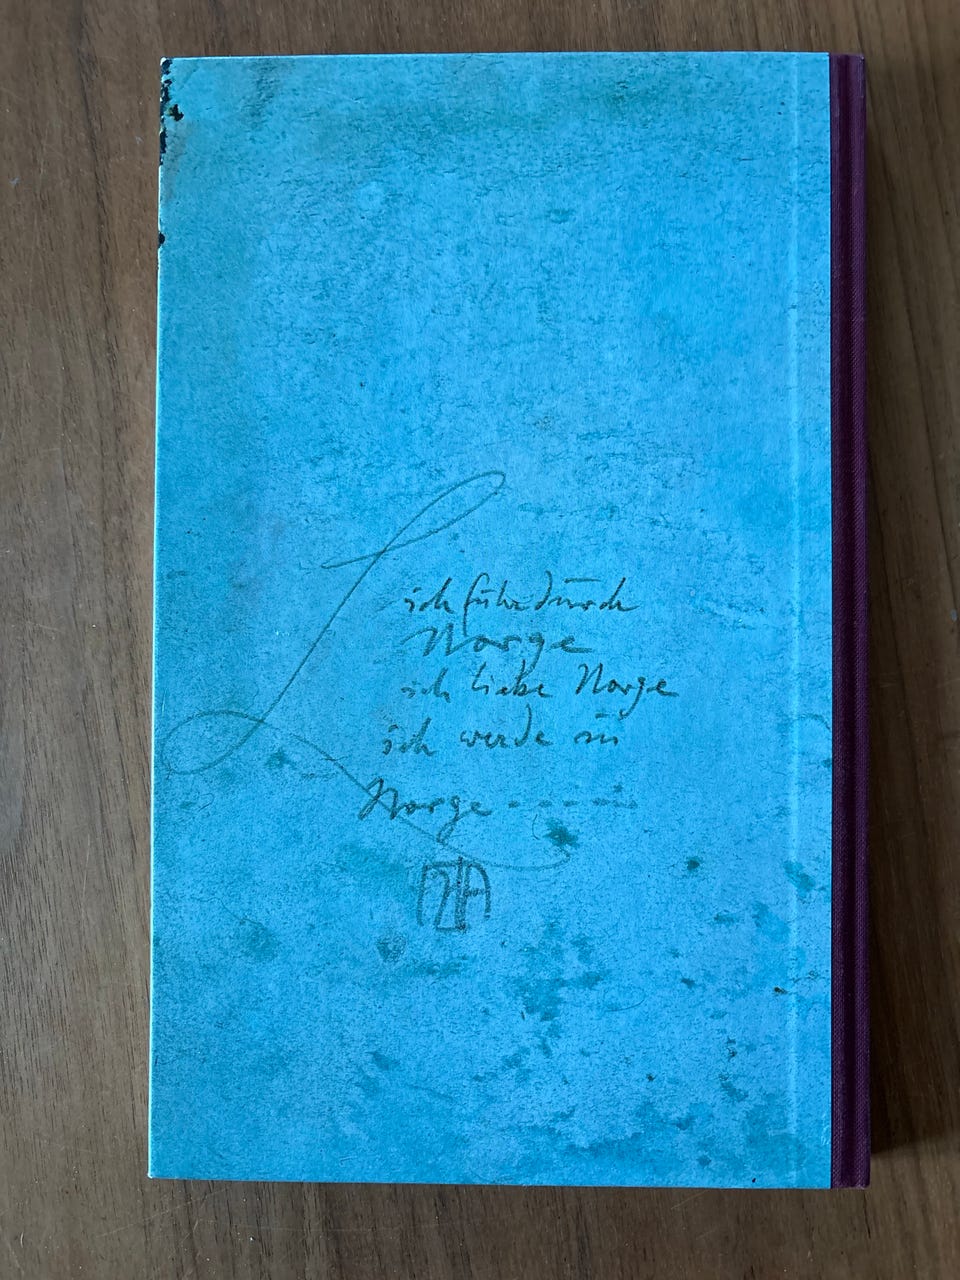 ich führe durch
Norge
ich liebe Norge
ich werde in
Norge - - - - -